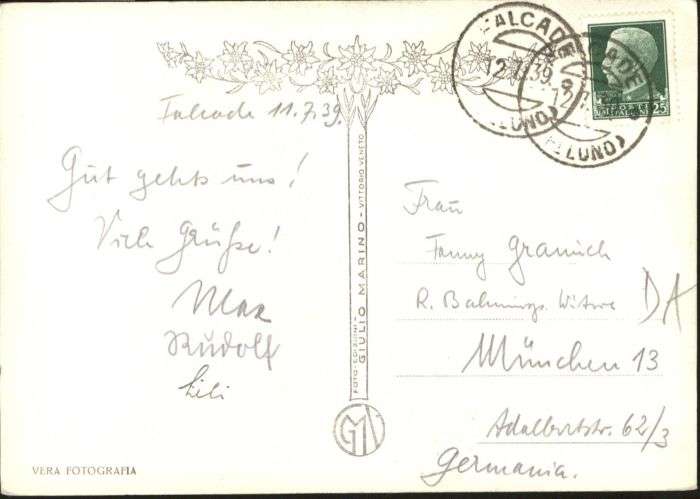 Falcade 11.7.39.
Gut gehts uns!
Viele Grüße!
Max
Rudolf
Lili
VERA FOTOGRAFIA
FOTO-EDIZIONI-
GIULIO MARINO - VITTORIO VENETO
GM
FALCADE
12. 39. 8
(BELLUNO)
POSTE ITALIANE
25
Frau
Fanny
R. Bahninsp. Witwe
DA
München 13
Adalbertstr. 62/3
Germania.